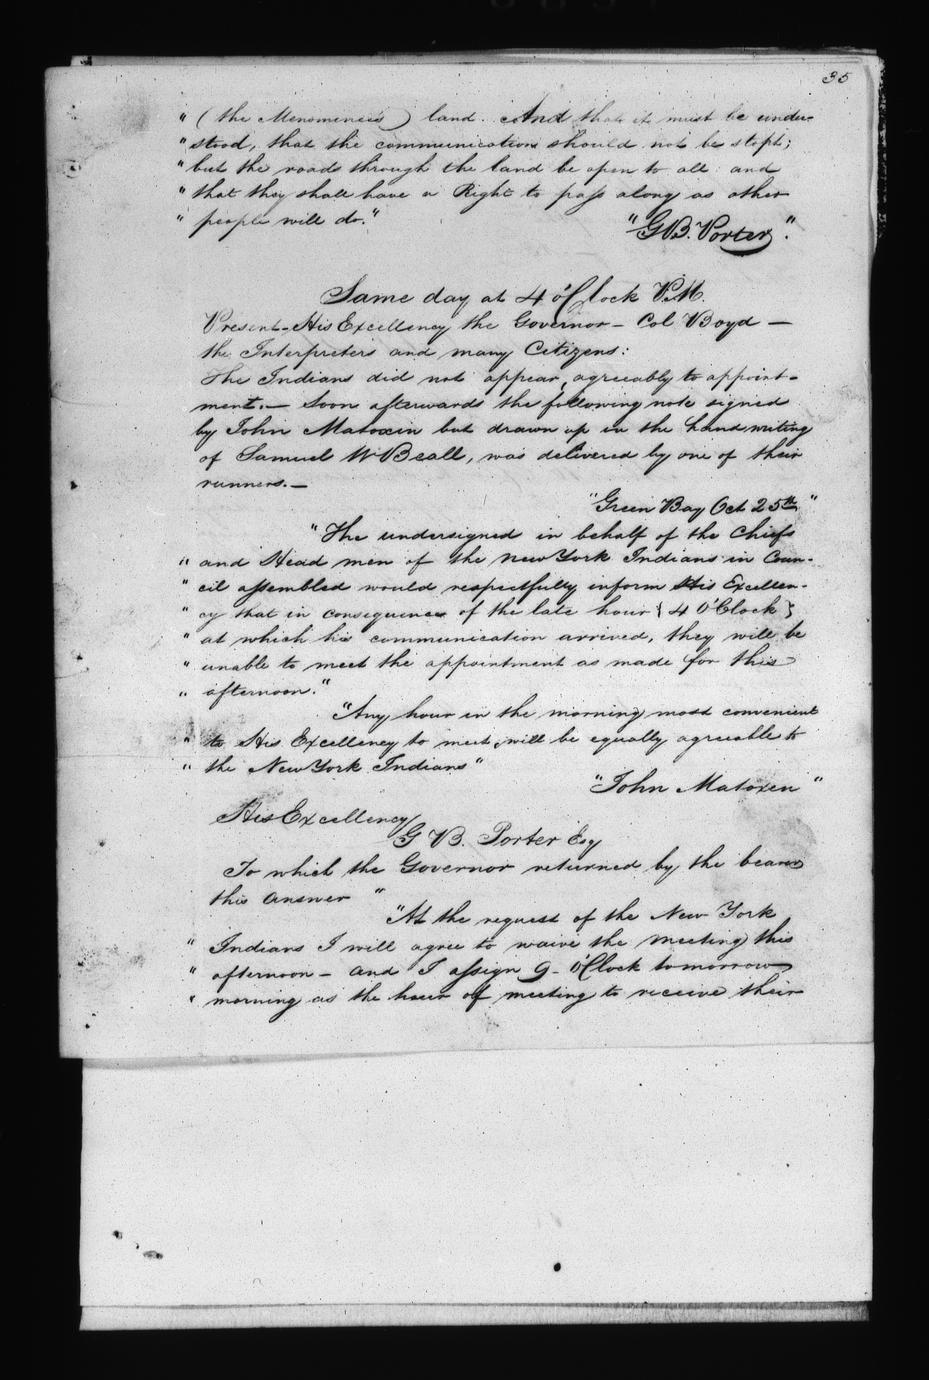 35
" (the Menominies) land. And that it must be under-
" stood, that the communications should not be stopt;
" but the roads through the land be open to all: and
" that they shall have a Right to pass along as other
" people will do."
"G.B. Porter".
Same day at 4 o'Clock P.M.
Present - His Excellency the Governor - Col Boyd —
the Interpreters and many Citizens:
The Indians did not appear, agreeably to appoint-
ment. — Soon afterwards the following note signed
by John Matoxin but drawn up in the handwriting
of Samuel W Beall, was delivered by one of their
runners. —
"Green Bay Oct 25th"
"The undersigned in behalf of the Chiefs
" and Head men of the New York Indians in Coun-
" cil assembled would respectfully inform His Excellen-
" cy that in consequence of the late hour {4 O'Clock}
" at which his communication arrived, they will be
" unable to meet the appointment as made for this
" afternoon."
"Any hour in the morning most convenient
" to His Excellency to meet, will be equally agreeable to
" the New York Indians"
"John Matoxen"
His Excellency
G B. Porter Esq
To which the Governor returned by the bearer
this answer "
"At the request of the New York
" Indians I will agree to waive the meeting this
" afternoon - and I assign 9 - O'Clock tomorrow
" morning as the hour of meeting to receive their